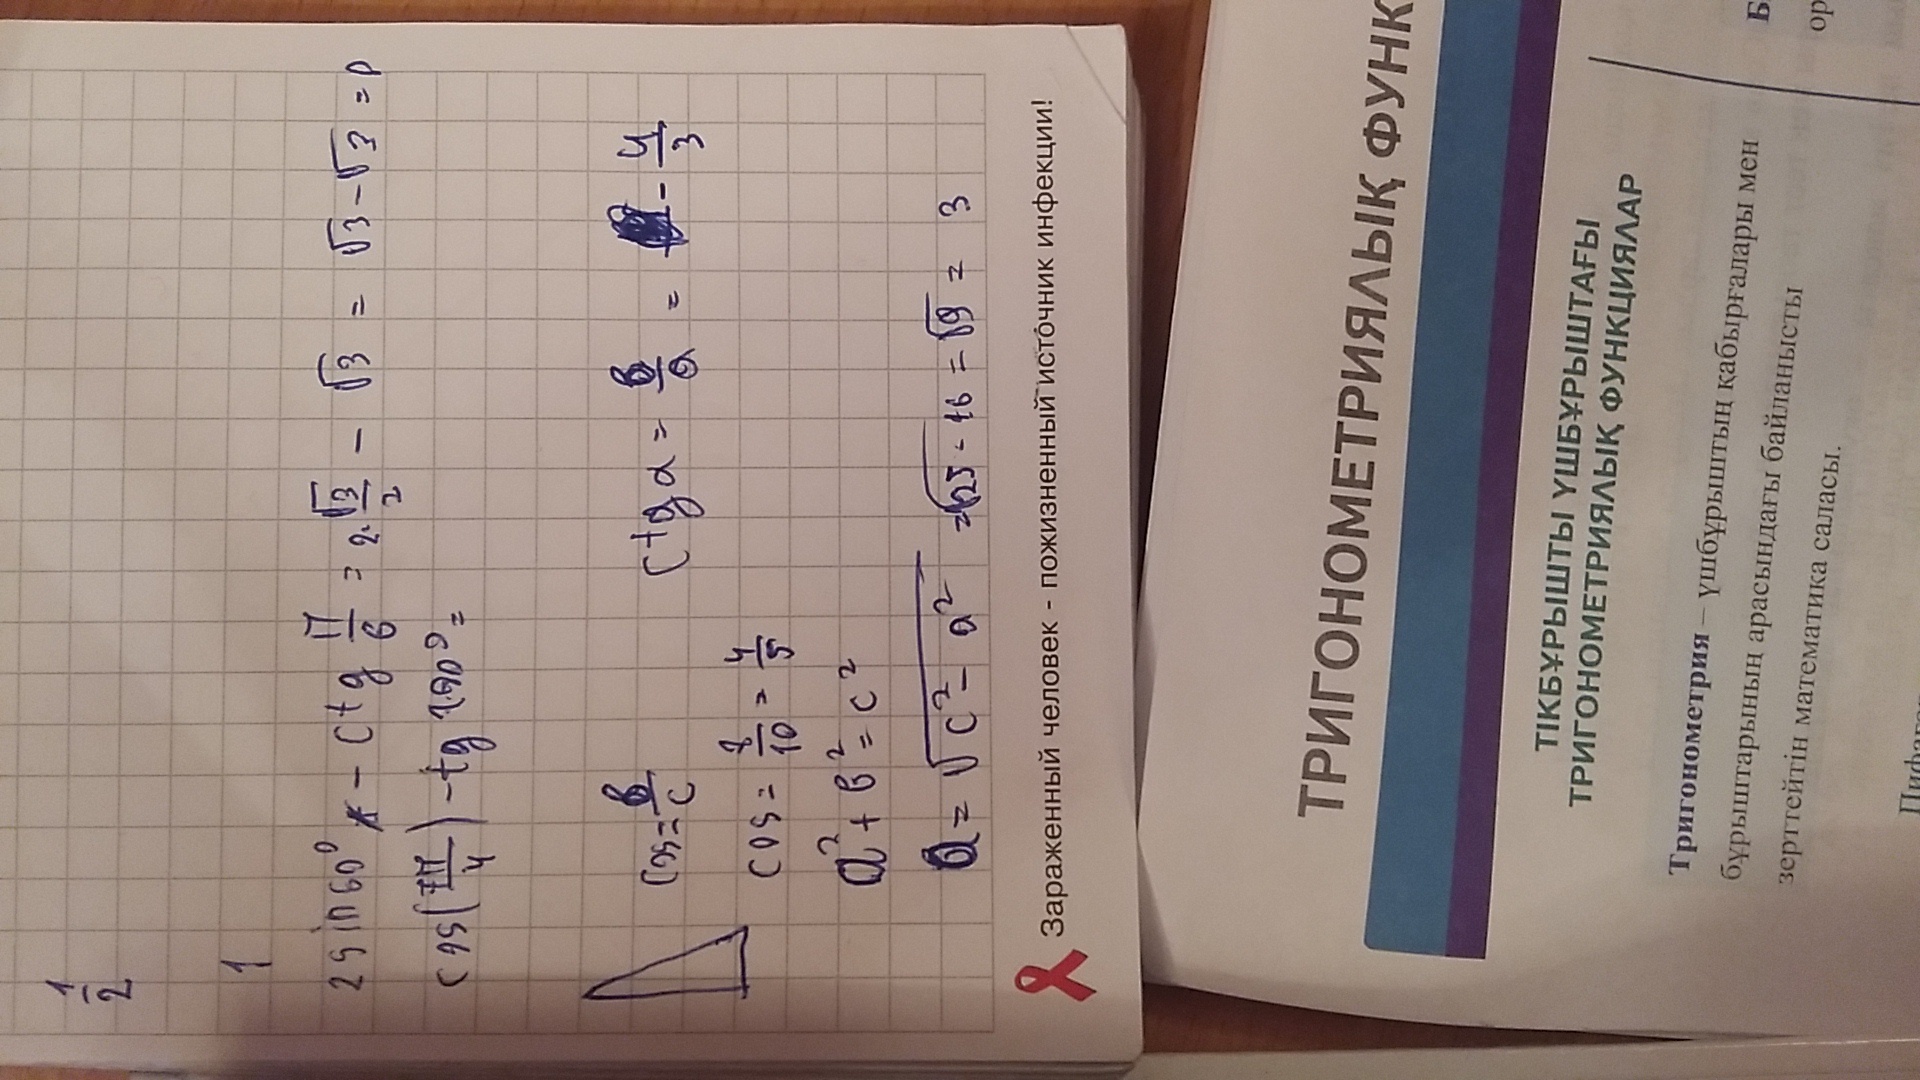 1/2
1
2 sin 60° - ctg π/6 = 2·√3/2 - √3 = √3 - √3 = 0
cos(π/4) - tg 180° =
cos = в/c
ctg α = в/a = - 4/3
cos = 8/10 = 4/5
a² + в² = c²
a = √c² - a² = √25 - 16 = √9 = 3
Зараженный человек - пожизненный источник инфекции!
ТРИГОНОМЕТРИЯЛЫҚ ФУНК
ТІКБҰРЫШТЫ ҮШБҰРЫШТАҒЫ
ТРИГОНОМЕТРИЯЛЫҚ ФУНКЦИЯЛАР
Тригонометрия – үшбұрыштың қабырғалары мен
бұрыштарының арасындағы байланысты
зерттейтін математика саласы.